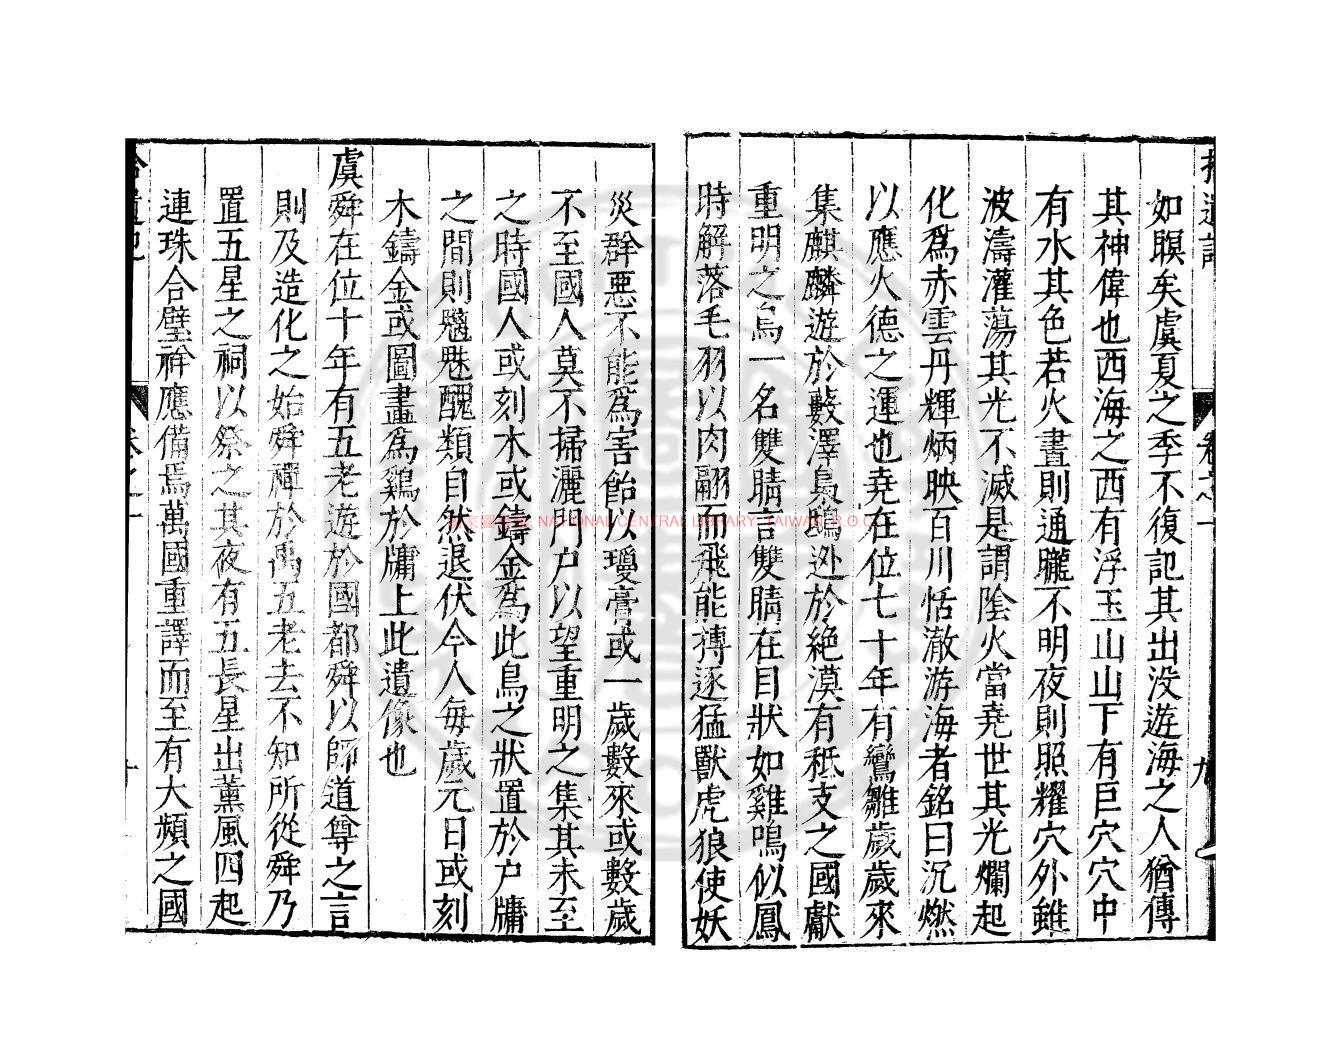 如瞑矣虞夏之季不復記其出没遊海之人猶傳
其神偉也西海之西有浮玉山山下有巨穴穴中
有水其色若火晝則通曨不明夜則照耀穴外雖
波濤灌蕩其光不滅是謂陰火當堯世其光爛起
化爲赤雲丹輝炳映百川恬澈游海者銘曰沉燃
以應火德之運也堯在位七十年有鸞雛歲歲來
集麒麟遊於藪澤梟鴟迯於絶漠有秪支之國獻
重明之鳥一名雙睛言雙睛在目狀如雞鳴似鳳
時解落毛羽以肉翮而飛能搏逐猛獸虎狼使妖
災群惡不能爲害飴以瓊膏或一歲數來或數歲
不至國人莫不掃灑門户以望重明之集其未至
之時國人或刻木或鑄金爲此鳥之狀置於户牖
之間則魑魅醜類自然退伏今人每歲元日或刻
木鑄金或圖畫爲鷄於牖上此遺像也
虞舜在位十年有五老遊於國都舜以師道尊之言
則及造化之始舜禪於禹五老去不知所從舜乃
置五星之祠以祭之其夜有五長星出薰風四起
連珠合璧祥應備焉萬國重譯而至有大頻之國
拾遺記
卷之一
十
拾遺記
卷之一
九
NATIONAL CENTRAL LIBRARY, TAIWAN, R.O.C.